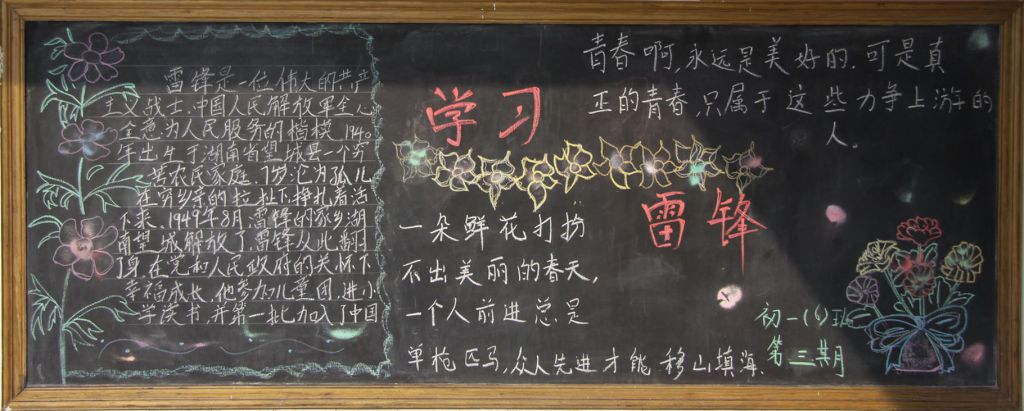 雷锋是一位伟大的共产
主义战士,中国人民解放军全心
全意为人民服务的楷模,1940
年出生于湖南省望城县一个穷
苦农民家庭,7岁沦为孤儿
在穷乡亲的拉扯下,挣扎着活
下来,1949年8月,雷锋的家乡湖
南望城解放了,雷锋从此翻
了身,在党和人民政府的关怀下
幸福成长,他参加儿童团,进小
学读书,并第一批加入了中国
学习
雷锋
青春啊,永远是美好的,可是真
正的青春,只属于这些力争上游的
人。
一朵鲜花打扮
不出美丽的春天,
一个人前进总是
单枪匹马,众人先进才能移山填海.
初一(6)班
第三期